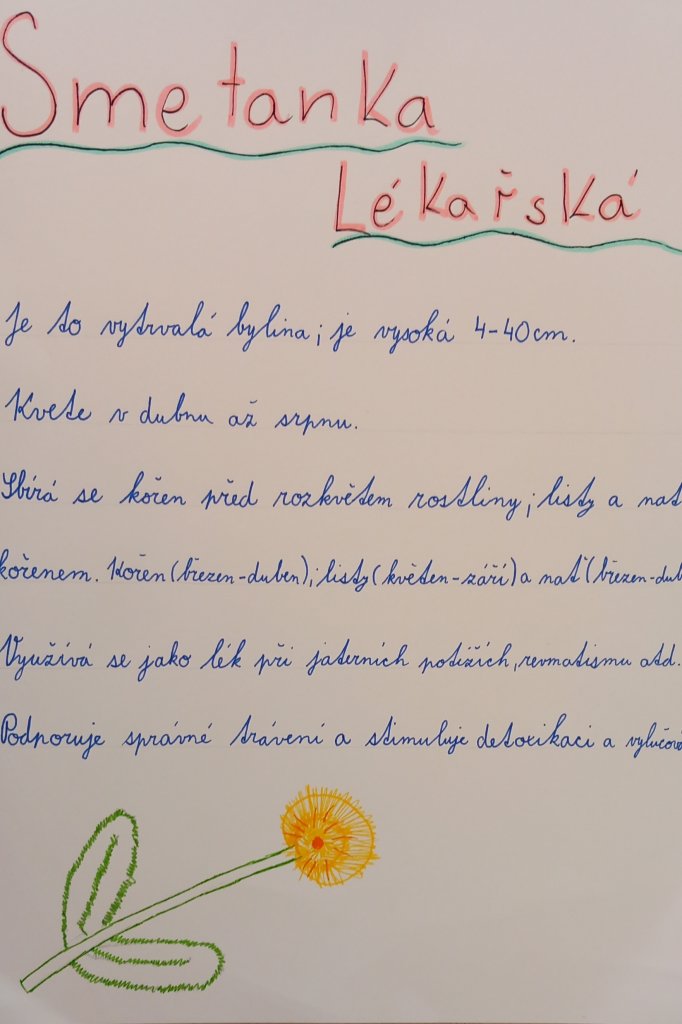 Smetanka
Lékařská
Je to vytrvalá bylina; je vysoká 4-40cm.
Kvete v dubnu až srpnu.
Sbírá se kořen před rozkvětem rostliny; listy a nať
kořenem. Kořen (březen-duben); listy (květen-září) a nať (březen-dub
Využívá se jako lék při jaterních potížích, revmatismu atd.
Podporuje správné trávení a stimuluje detoxikaci a